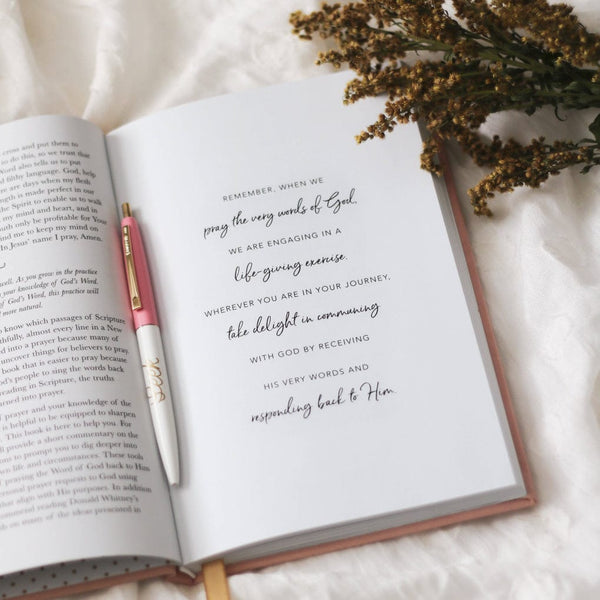 cross and put them to
to do this, so we trust that
Word also tells us to put
d filthy language. God, help
e are days when my flesh
ength is made perfect in our
the Spirit to enable us to walk
, my mind and heart, and in
outh only be profitable for Your
nd me to keep my mind on
In Jesus' name I pray, Amen.
well. As you grow in the practice
your knowledge of God's Word,
of God's Word, this practice will
more natural.
o know which passages of Scripture
thfully, almost every line in a New
into a prayer because many of
uncover things for believers to pray.
book that is easier to pray because
od's people to sing the words back
reading in Scripture, the truths
turned into prayer.
prayer and your knowledge of the
is helpful to be equipped to sharpen
This book is here to help you. For
ll provide a short commentary on the
ons to prompt you to dig deeper into
own life and circumstances. These tools
of praying the Word of God back to Him
personal prayer requests to God using
that align with His purposes. In addition
mmend reading Donald Whitney's
th on many of the ideas presented in
Seek
REMEMBER, WHEN WE
pray the very words of God,
WE ARE ENGAGING IN A
life-giving exercise.
WHEREVER YOU ARE IN YOUR JOURNEY,
take delight in communing
WITH GOD BY RECEIVING
HIS VERY WORDS AND
responding back to Him.